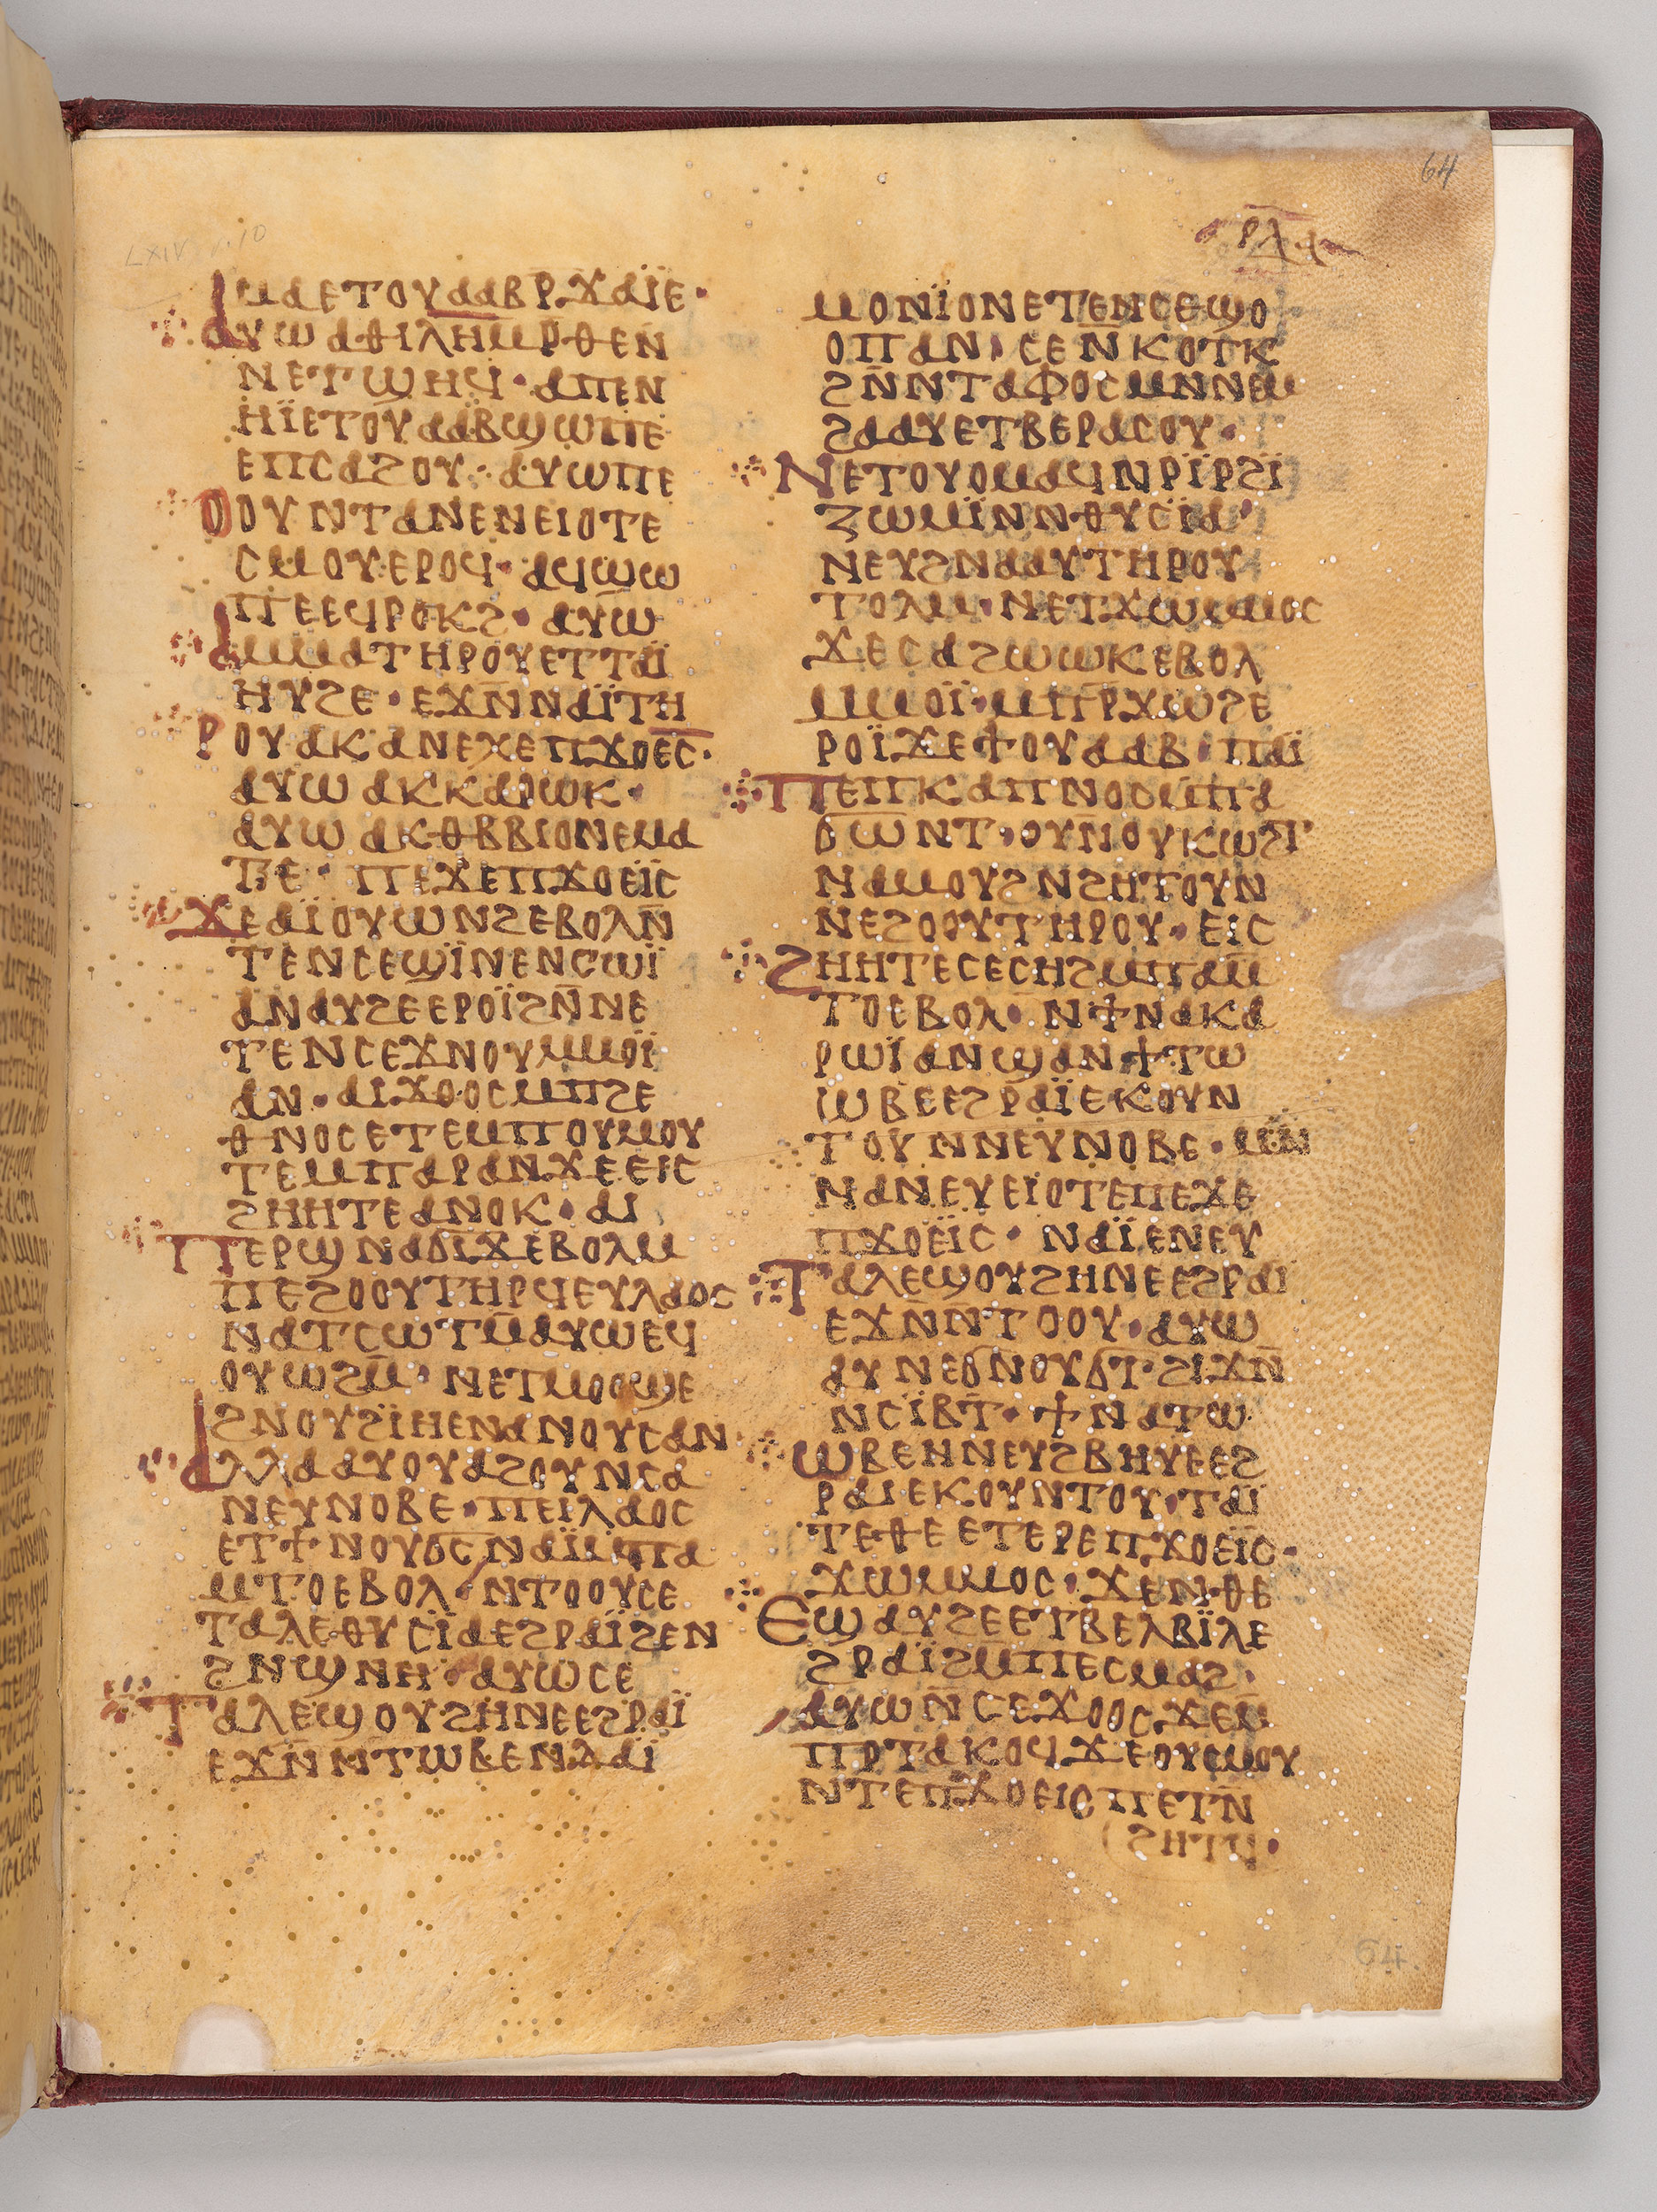 64
ⲣⲗ
LXIV v. 10
ⲙⲁⲉⲧⲟⲩⲁⲁⲃⲣϫⲁⲓ̈ⲉ·
ⲁⲩⲱⲁⲑⲓⲗⲏⲙⲣ̄ⲑⲉⲛ
ⲛⲉⲧϣⲏϥ·ⲁⲡⲉⲛ
ⲏⲓ̈ⲉⲧⲟⲩⲁⲁⲃϣⲱⲡⲉ
ⲉⲡⲥⲁϩⲟⲩ·ⲁⲩⲱⲡⲉ
ⲟⲟⲩⲛⲧⲁⲛⲉⲛⲉⲓⲟⲧⲉ
ⲥⲙⲟⲩⲉⲣⲟϥ·ⲁϥϣⲱ
ⲡⲉⲉϥⲣⲟⲕϩ·ⲁⲩⲱ
ⲁⲙⲙⲁⲧⲏⲣⲟⲩⲉⲧⲧⲁⲓ̈
ⲏⲩϩⲉ·ⲉϫⲛ̄ⲛⲁⲓ̈ⲧⲏ
ⲣⲟⲩⲁⲕⲁⲛⲉⲭⲉⲡϫⲟⲉⲓⲥ·
ⲁⲩⲱⲁⲕⲕⲁⲣⲱⲕ·
ⲁⲩⲱⲁⲕⲑⲃⲃⲓⲟⲛⲉⲙⲁ
ⲧⲉ· ⲡⲉϫⲉⲡϫⲟⲉⲓ̈ⲥ
ϫⲉⲁⲓ̈ⲟⲩⲱⲛϩⲉⲃⲟⲗⲛ̄
ⲧⲉⲛⲥⲉϣⲓ̈ⲛⲉⲛⲥⲱⲓ̈
ⲁⲛⲁⲩϩⲉⲉⲣⲟⲓ̈ϩⲛ̄ⲛⲉ
ⲧⲉⲛⲥⲉϫⲛⲟⲩⲙⲙⲟⲓ̈
ⲁⲛ·ⲁⲓϫⲟⲟⲥⲙⲡϩⲉ
ⲑⲛⲟⲥⲉⲧⲉⲙⲡⲟⲩⲙⲟⲩ
ⲧⲉⲙⲡⲁⲣⲁⲛϫⲉⲉⲓⲥ
ϩⲏⲏⲧⲉⲁⲛⲟⲕ·ⲁⲓ
ⲡⲉⲣϣⲛⲁϭⲓϫⲉⲃⲟⲗⲙ
ⲡⲉϩⲟⲟⲩⲧⲏⲣϥⲉⲩⲗⲁⲟⲥ
ⲛⲁⲧⲥⲱⲧⲙ̄ⲁⲩⲱⲉϥ
ⲟⲩⲱϩⲙ̄·ⲛⲉⲧⲙⲟⲟϣⲉ
ϩⲛⲟⲩϩⲓ̈ⲏⲉⲛⲁⲛⲟⲩⲥⲁⲛ·
ⲁⲗⲗⲁⲁⲩⲟⲩⲁϩⲟⲩⲛⲥⲁ
ⲛⲉⲩⲛⲟⲃⲉ·ⲡⲉⲓⲗⲁⲟⲥ
ⲉⲧϯⲛⲟⲩϭⲥⲛⲁⲓ̈ⲙⲡⲁ
ⲙⲧⲟⲉⲃⲟⲗ·ⲛⲧⲟⲟⲩⲥⲉ
ⲧⲁⲗⲉⲑⲩⲥⲓ̈ⲁⲉϩⲣⲁⲓ̈ϩⲉⲛ
ϩⲛϣⲛⲏ·ⲁⲩⲱⲥⲉ
ⲧⲁⲗⲉϣⲟⲩϩⲏⲛⲉⲉϩⲣⲁⲓ̈
ⲉϫⲛ̄ⲛⲧⲱⲃⲉⲛⲗⲁⲓ̈
ⲙⲟⲛⲓ̈ⲟⲛⲉⲧⲉⲛⲥⲉϣⲟ
ⲟⲡⲁⲛ·ⲥⲉⲛⲕⲟⲧⲕ
ϩⲛ̄ⲛⲧⲁⲫⲟⲥⲙⲛⲛⲉⲙ
ϩⲁⲁⲩⲉⲧⲃⲉⲣⲁⲥⲟⲩ·
ⲛⲉⲧⲟⲩⲟⲙⲁϥⲛⲣⲓ̈ⲣϩⲓ̈
ⲍⲱⲙⲓ̈ⲛⲛⲑⲩⲥⲓ̈ⲁ·
ⲛⲉⲩϩⲛⲁⲁⲩⲧⲏⲣⲟⲩ
ⲧⲟⲗⲙ·ⲛⲉⲧϫⲱⲙⲙⲟⲥ
ϫⲉⲥⲁϩⲱⲱⲕⲉⲃⲟⲗ
ⲙⲙⲟⲓ̈·ⲙⲡⲣϫⲱϩⲉ
ⲣⲟⲓ̈ϫⲉϯⲟⲩⲁⲁⲃ·ⲡⲁⲓ̈
ⲡⲉⲡⲕⲁⲡⲛⲟⲥⲙⲡⲁ
ϭⲱⲛⲧ·ⲟⲩⲛⲟⲩⲕⲱϩⲧ
ⲛⲁⲙⲟⲩϩⲛϩⲏⲧⲟⲩⲛ
ⲛⲉϩⲟⲟⲩⲧⲏⲣⲟⲩ·ⲉⲓⲥ
ϩⲏⲏⲧⲉⲥⲉⲥⲏϩⲙⲡⲁⲙ̄
ⲧⲟⲉⲃⲟⲗ·ⲛϯⲛⲁⲕⲁ
ⲣⲱⲓ̈ⲁⲛϣⲁⲛϯⲧⲱ
ⲱⲃⲉⲉϩⲣⲁⲓ̈ⲉⲕⲟⲩⲛ
ⲧⲟⲩⲛⲛⲉⲩⲛⲟⲃⲉ·ⲙⲛ̄
ⲛⲁⲛⲉⲩⲉⲓ̈ⲟⲧⲉⲡⲉϫⲉ
ⲡϫⲟⲉⲓ̈ⲥ·ⲛⲁⲓ̈ⲉⲛⲉⲩ
ⲧⲁⲗⲉϣⲟⲩϩⲏⲛⲉⲉϩⲣⲁⲓ̈
ⲉϫⲛ̄ⲛⲧⲟⲟⲩ·ⲁⲩⲱ
ⲁⲩⲛⲉϭⲛⲟⲩϭⲧ·ϩⲓϫⲛ̄
ⲛⲥⲓ̈ⲃⲧ·ϯⲛⲁⲧⲱ
ⲱⲃⲉⲛⲛⲉⲩϩⲃⲏⲩⲉⲉϩ
ⲣⲁⲓⲉⲕⲟⲩⲛⲧⲟⲩ·ⲧⲁⲓ̈
ⲧⲉⲑⲉⲉⲧⲉⲣⲉⲡϫⲟⲉⲓ̈ⲥ·
ϫⲱⲙⲙⲟⲥ·ϫⲉⲛⲑⲉ
ⲉϣⲁⲩϩⲉⲉⲧⲃⲉⲗⲃⲓ̈ⲗⲉ
ϩⲣⲁⲓ̈ϩⲙⲡⲉⲥⲙⲁϩ·
ⲁⲩⲱⲛ̄ⲥⲉϫⲟⲟⲥϫⲉⲙ̄
ⲡⲣⲧⲁⲕⲟϥϫⲉⲟⲩⲥⲙⲟⲩ
ⲛⲧⲉⲡϫⲟⲉⲓⲥⲡⲉⲧⲛ̄
ϩⲏⲧϥ·
64